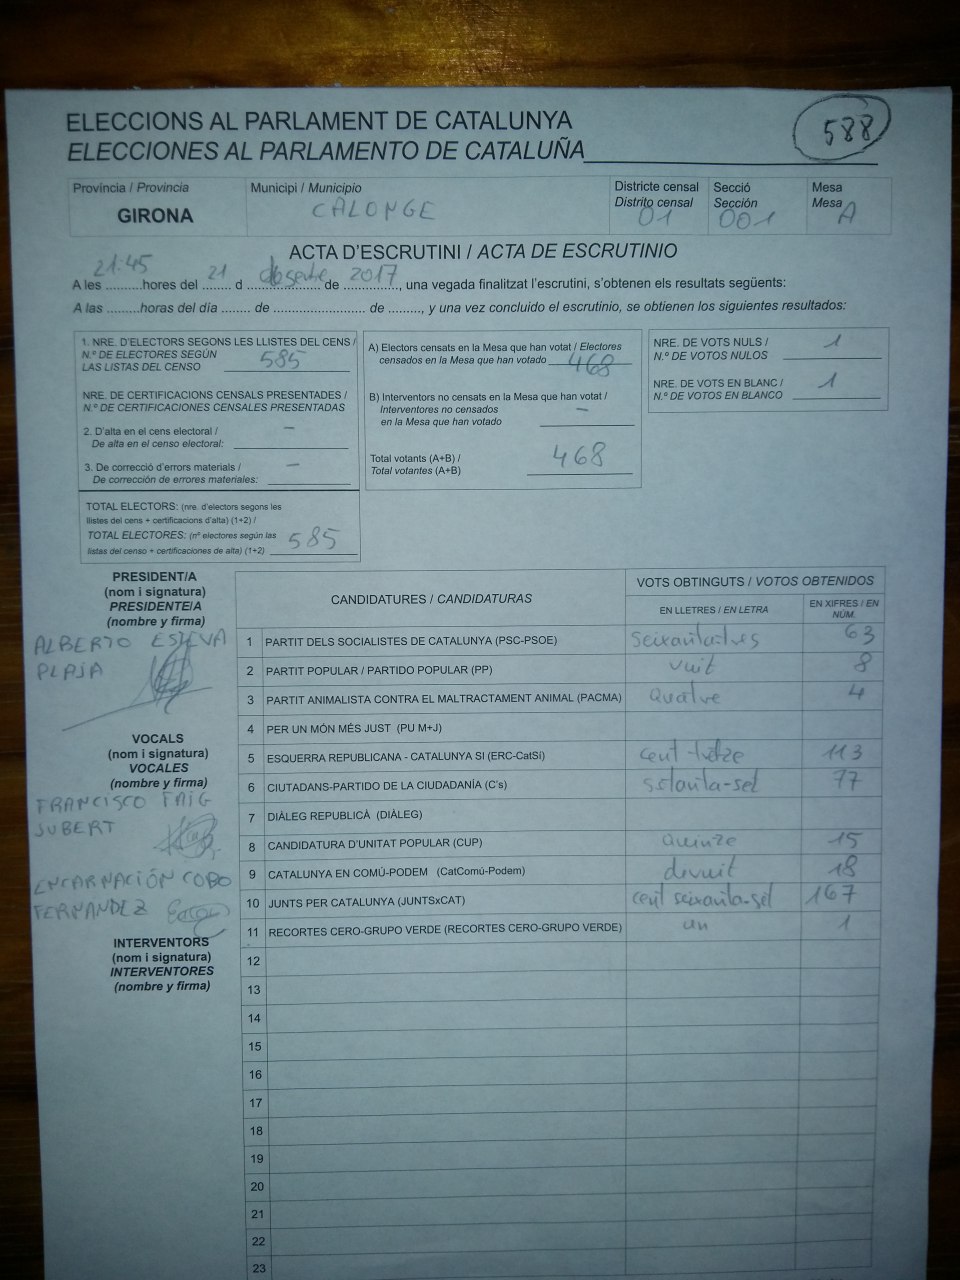 ELECCIONS AL PARLAMENT DE CATALUNYA
ELECCIONES AL PARLAMENTO DE CATALUÑA
588
Província / Provincia
GIRONA
Municipi / Municipio
CALONGE
Districte censal
Distrito censal
01
Secció
Sección
001
Mesa
Mesa
A
ACTA D'ESCRUTINI / ACTA DE ESCRUTINIO
A les 21:45 hores del 21 d desembre de 2017, una vegada finalitzat l'escrutini, s'obtenen els resultats següents:
A las .........horas del día ........ de ......................... de ........., y una vez concluido el escrutinio, se obtienen los siguientes resultados:
1. NRE. D'ELECTORS SEGONS LES LLISTES DEL CENS /
N.º DE ELECTORES SEGÚN
LAS LISTAS DEL CENSO 585
NRE. DE CERTIFICACIONS CENSALS PRESENTADES /
N.º DE CERTIFICACIONES CENSALES PRESENTADAS
2. D'alta en el cens electoral / –
De alta en el censo electoral:
3. De correcció d'errors materials / –
De corrección de errores materiales:
TOTAL ELECTORS: (nre. d'electors segons les
llistes del cens + certificacions d'alta) (1+2) /
TOTAL ELECTORES: (nº electores según las
listas del censo + certificaciones de alta) (1+2) 585
A) Electors censats en la Mesa que han votat / Electores
censados en la Mesa que han votado 468
B) Interventors no censats en la Mesa que han votat /
Interventores no censados –
en la Mesa que han votado
Total votants (A+B) /
Total votantes (A+B) 468
NRE. DE VOTS NULS / 1
N.º DE VOTOS NULOS
NRE. DE VOTS EN BLANC / 1
N.º DE VOTOS EN BLANCO
PRESIDENT/A
(nom i signatura)
PRESIDENTE/A
(nombre y firma)
ALBERTO ESTEVA
PLAJA
VOCALS
(nom i signatura)
VOCALES
(nombre y firma)
FRANCISCO FAIG
JUBERT
ENCARNACIÓN COBO
FERNANDEZ
INTERVENTORS
(nom i signatura)
INTERVENTORES
(nombre y firma)
CANDIDATURES / CANDIDATURAS
VOTS OBTINGUTS / VOTOS OBTENIDOS
EN LLETRES / EN LETRA
EN XIFRES / EN
NÚM.
1 PARTIT DELS SOCIALISTES DE CATALUNYA (PSC-PSOE) seixanta-tres 63
2 PARTIT POPULAR / PARTIDO POPULAR (PP) vuit 8
3 PARTIT ANIMALISTA CONTRA EL MALTRACTAMENT ANIMAL (PACMA) quatre 4
4 PER UN MÓN MÉS JUST (PU M+J)
5 ESQUERRA REPUBLICANA - CATALUNYA SI (ERC-CatSí) cent-tretze 113
6 CIUTADANS-PARTIDO DE LA CIUDADANÍA (C's) setanta-set 77
7 DIÀLEG REPUBLICÀ (DIÀLEG)
8 CANDIDATURA D'UNITAT POPULAR (CUP) quinze 15
9 CATALUNYA EN COMÚ-PODEM (CatComú-Podem) divuit 18
10 JUNTS PER CATALUNYA (JUNTSxCAT) cent seixanta-set 167
11 RECORTES CERO-GRUPO VERDE (RECORTES CERO-GRUPO VERDE) un 1
12
13
14
15
16
17
18
19
20
21
22
23